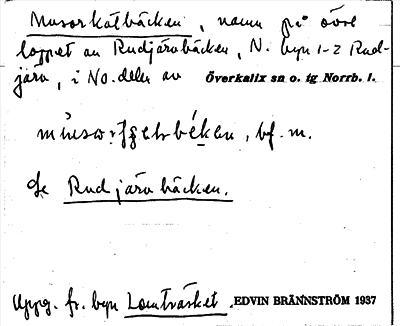 Musorkatbäcken, namn på övre
loppet av Rudjärvbäcken, N. byn 1-2 Rud-
järv, i No. delen av Överkalix sn o. tg Norrb. l.
bf. m.
Se Rudjärvbäcken.
Uppg. fr. byn Lomträsket. EDVIN BRÄNNSTRÖM 1937